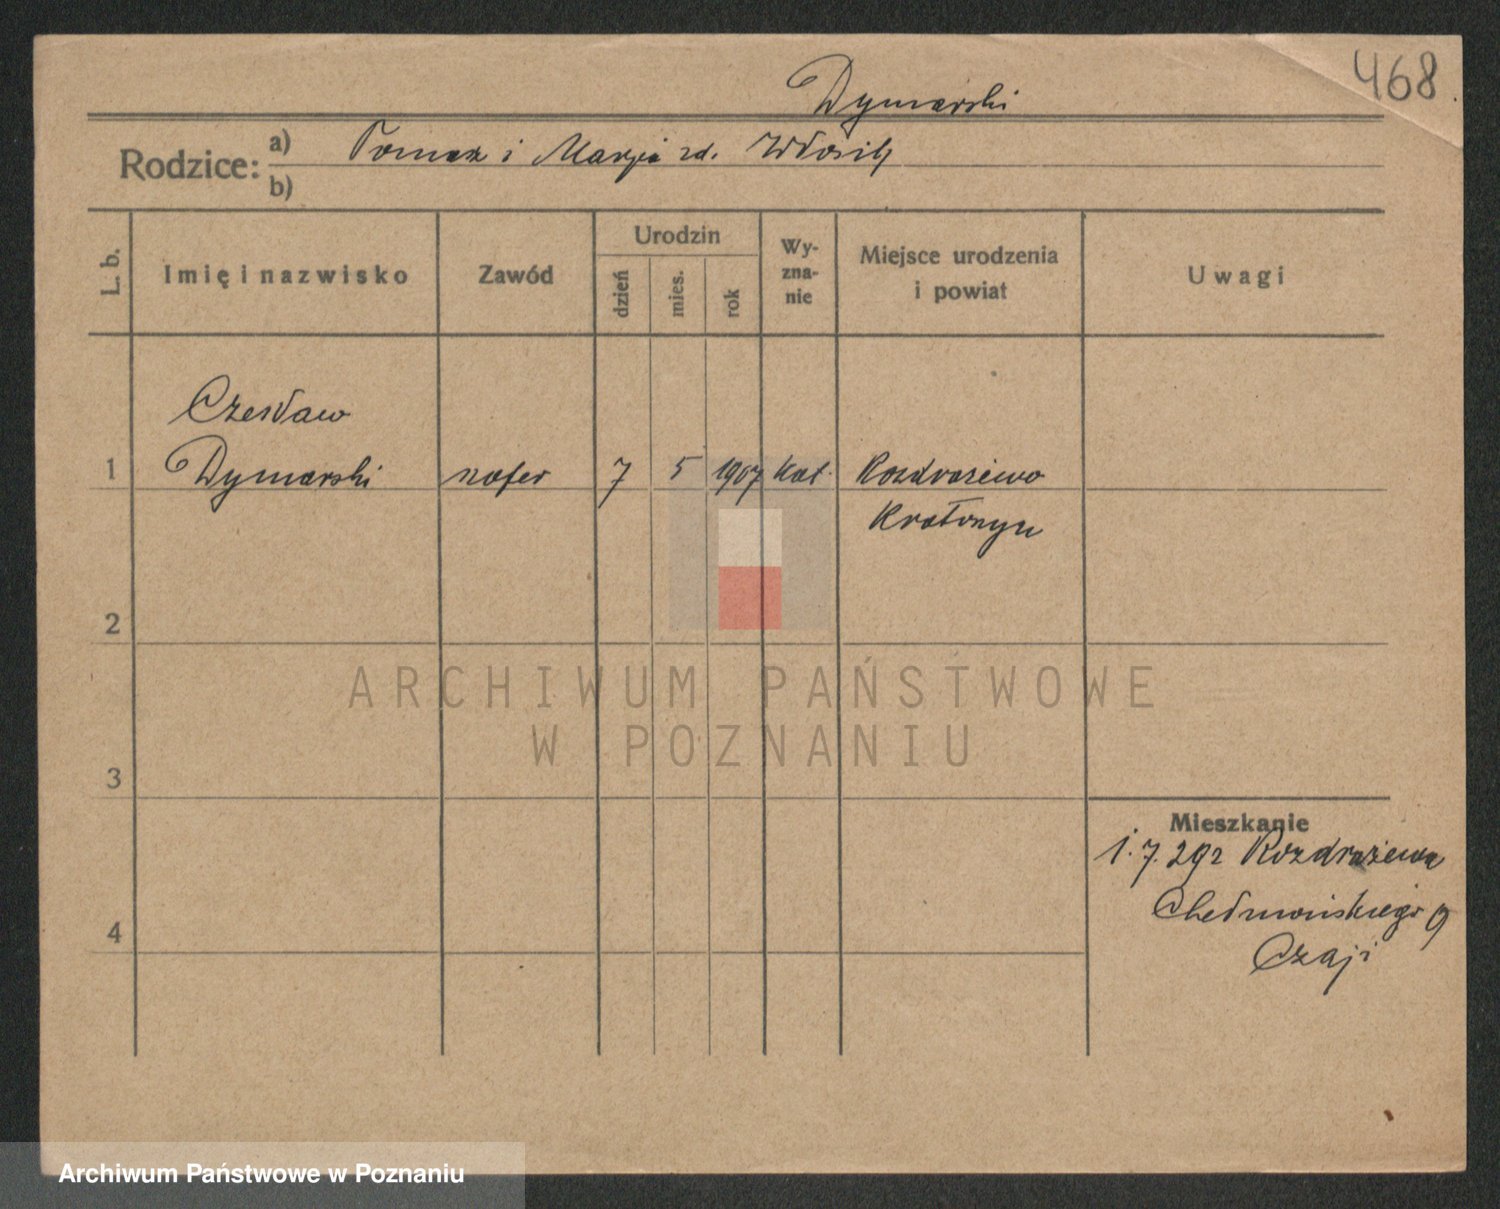 468
Dymarski
Rodzice: a) Tomasz i Marja zd.
b)
L. b.
Imię i nazwisko
Zawód
Urodzin
dzień
mies.
rok
Wy-
zna-
nie
Miejsce urodzenia
i powiat
Uwagi
Czesław
1 Dymarski szofer 7 5 1907 kat. Rozdrażewo
Krotoszyn
2
3
4
Mieszkanie
1.7.292 Rozdrażewa
Chełmońskiego 9
Czaji
ARCHIWUM PAŃSTWOWE
W POZNANIU
Archiwum Państwowe w Poznaniu